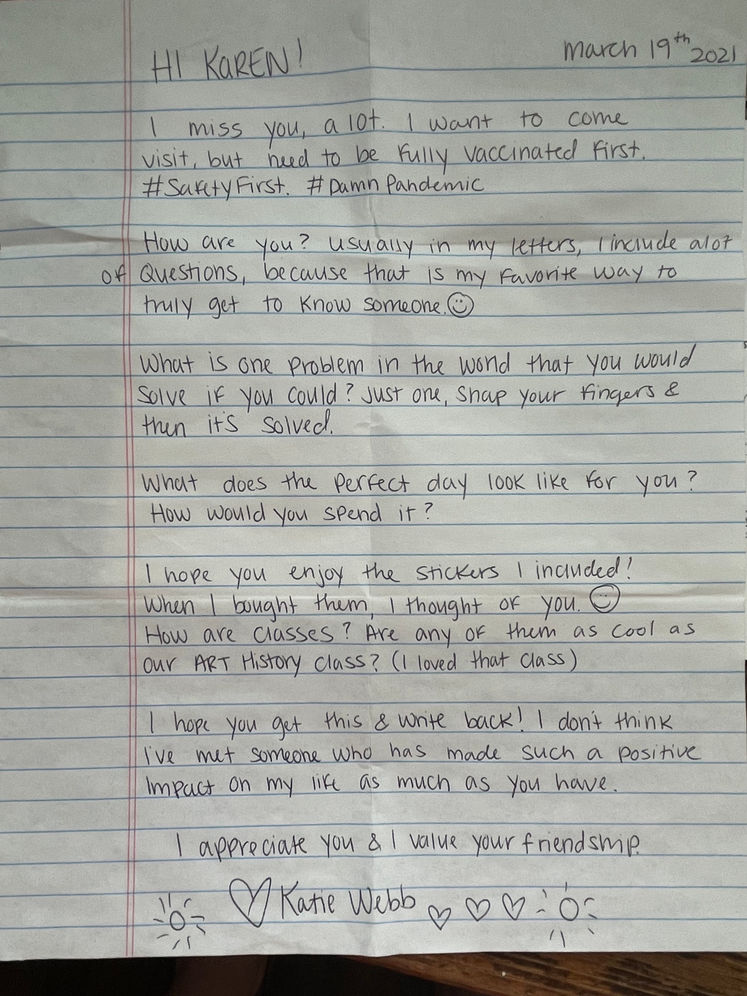 HI KAREN!
March 19th 2021
I miss you, a lot. I want to come
visit, but need to be fully vaccinated first.
#SafetyFirst. #DamnPandemic
How are you? Usually in my letters, I include alot
of Questions, because that is my favorite way to
truly get to know someone. ☺
What is one problem in the world that you would
solve if you could? Just one, snap your fingers &
then it's solved.
What does the perfect day look like for you?
How would you spend it?
I hope you enjoy the stickers I included!
When I bought them, I thought of you. ☺
How are classes? Are any of them as cool as
our ART History class? (I loved that class)
I hope you get this & write back! I don't think
I've met someone who has made such a positive
impact on my life as much as you have.
I appreciate you & I value your friendship.
♡ Katie Webb ♡ ♡ ♡